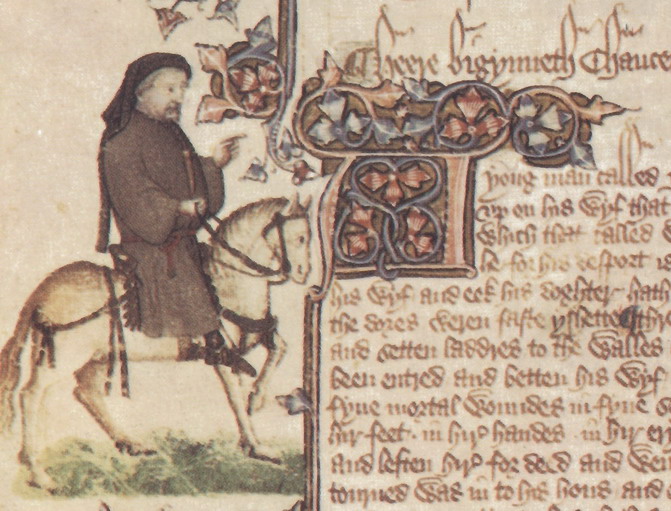 Heere bigynneth Chauce
A
yong man called
vp on his Wyf that
Which that called
he for his desport is
his Wyf and eek his doghter hath
the dores weren faste yshette thre
and setten laddres to the Walles
been entred and betten his Wyf
fyue mortal Woundes in fyue
hir feet · in hir handes · in hir er
and leften hir for deed and Wen
tourned Was in to his hous and